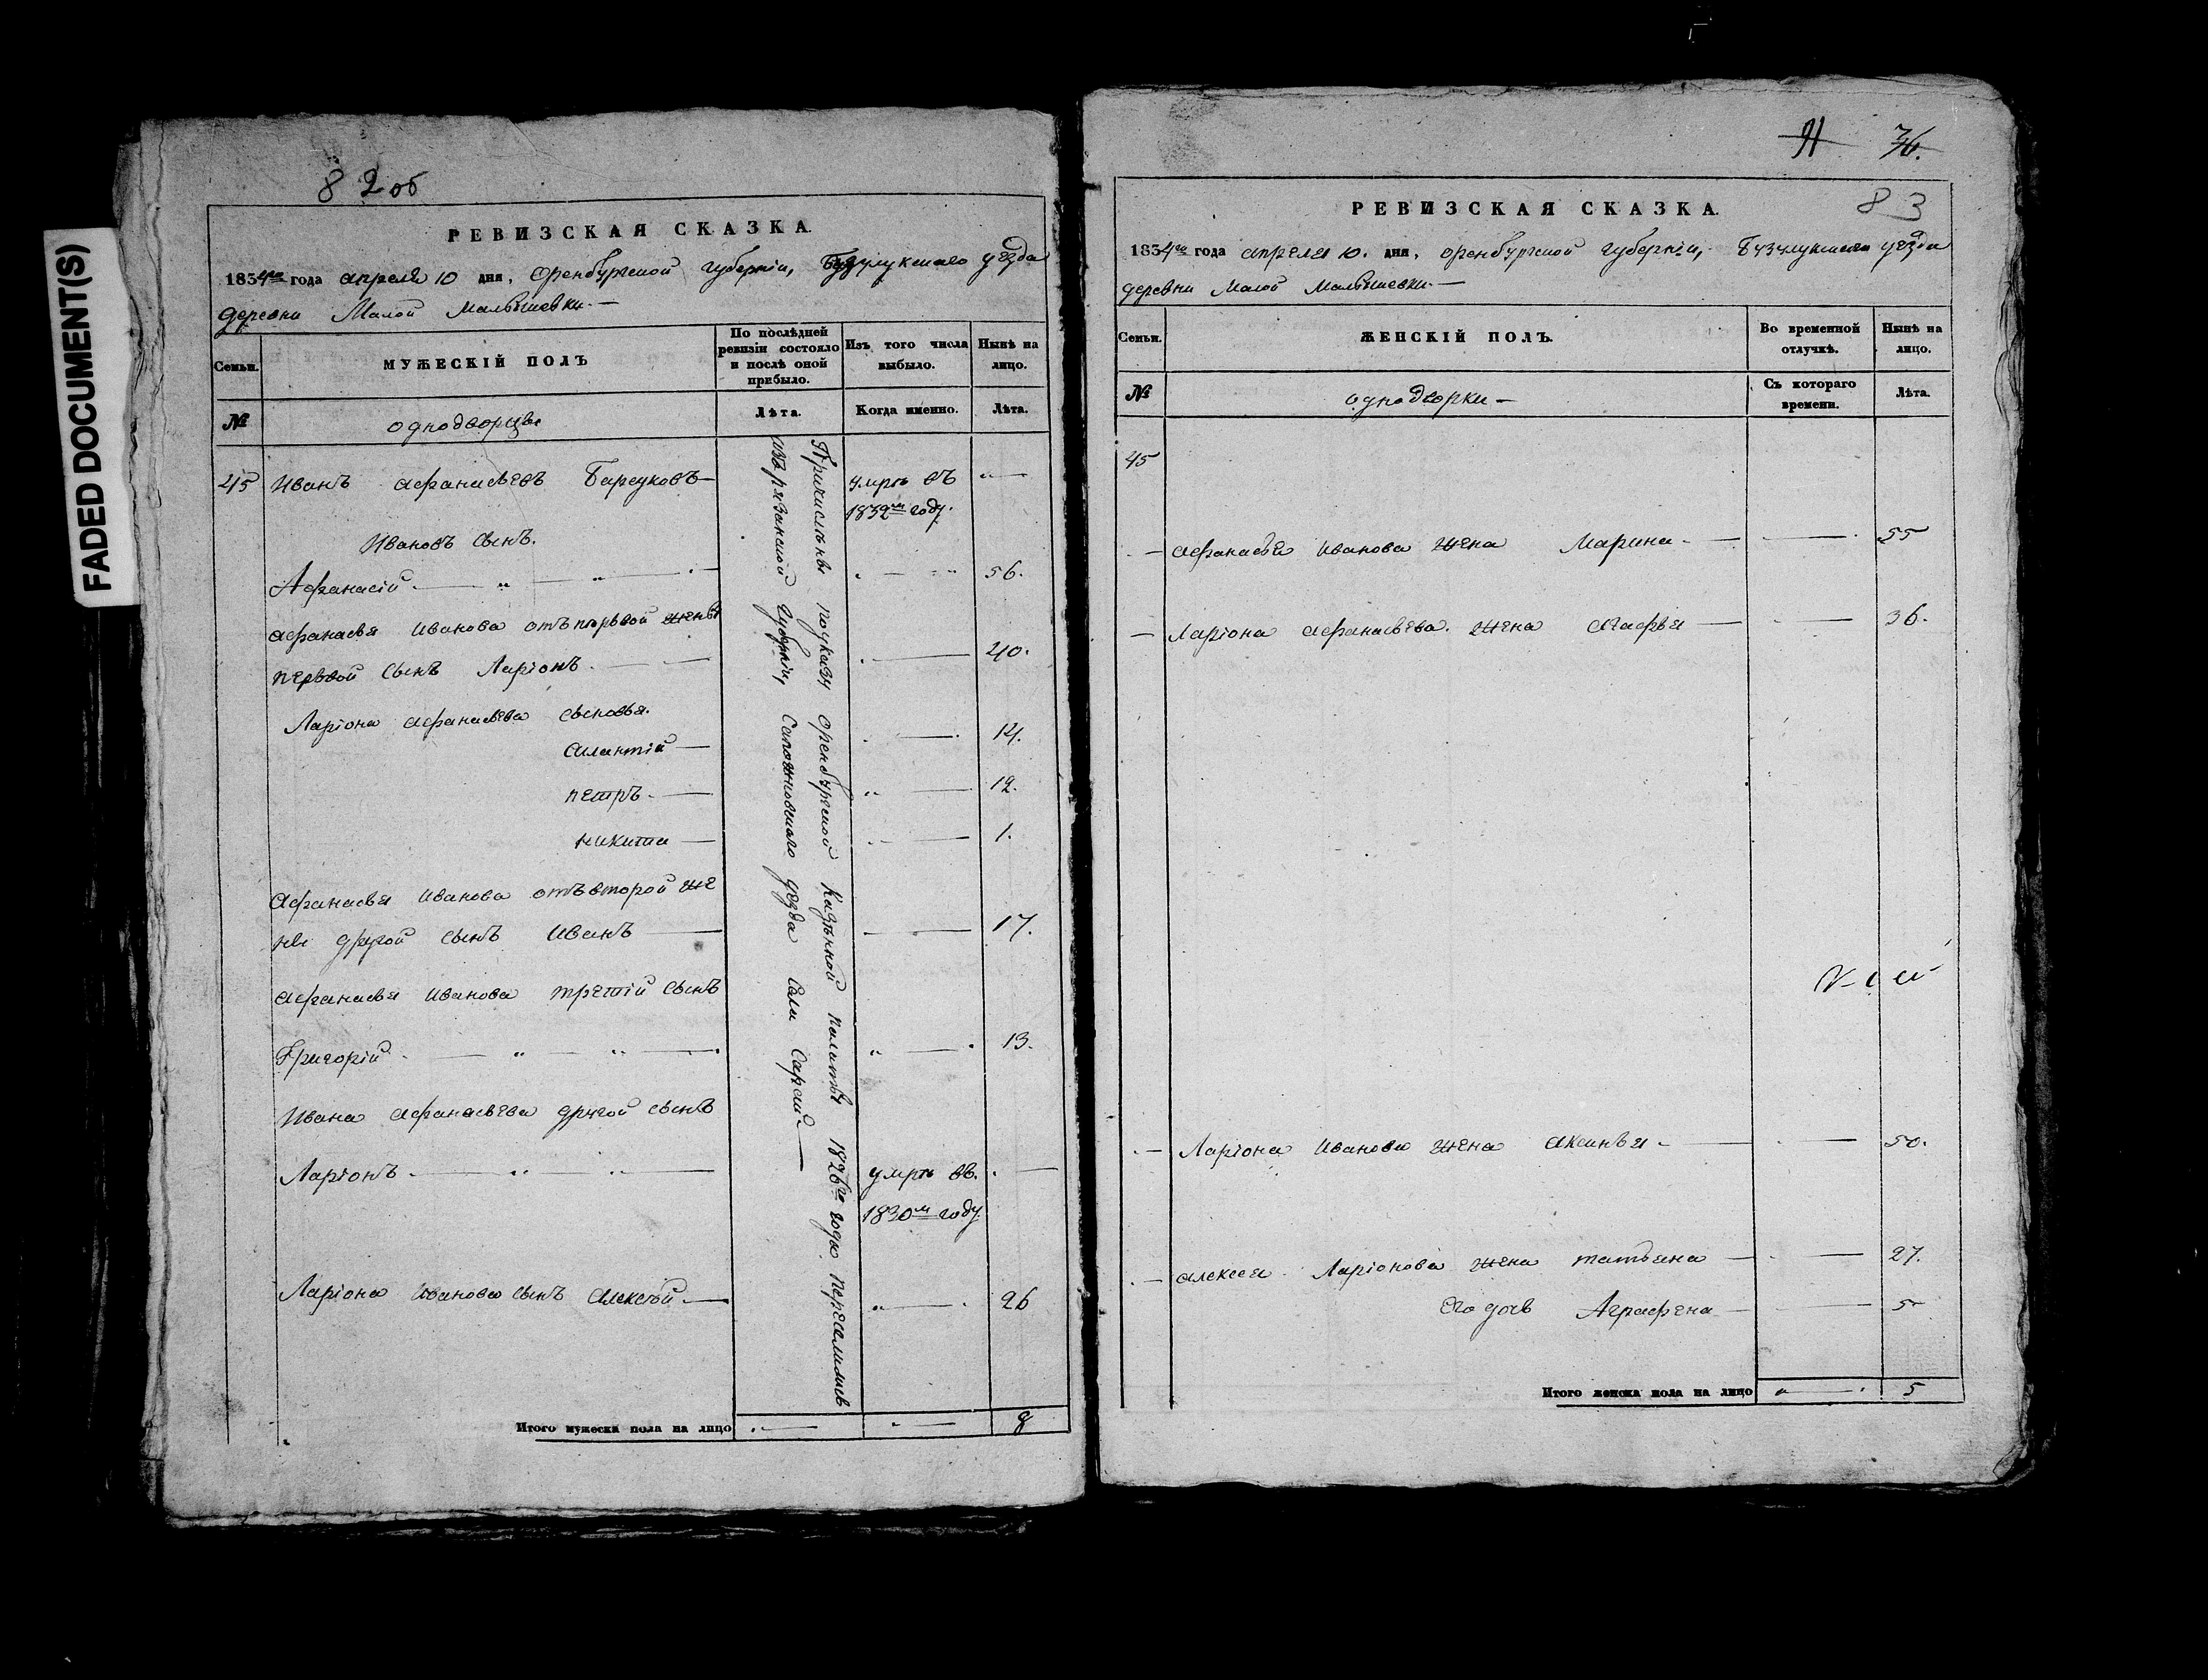 FADED DOCUMENT(S)
82об
РЕВИЗСКАЯ СКАЗКА.
1834го года апреля 10 дня, Оренбургской губернiи, Бузулукскаго уѣзда
деревни Малой Малышевки. —
Семьи.
МУЖЕСКIЙ ПОЛЪ
По послѣдней ревизiи состояло и послѣ оной прибыло.
Изъ того числа выбыло.
Нынѣ на лицо.
№
однодворцы
Лѣта.
Когда именно.
Лѣта.
Причислены поуказу Оренбургской Казенной палаты 1826го года переселились
изъ рязанской губернiи, Сапожковскаго уѣзда Села Сараи —
45 Иванъ Афанасьевъ Барсуковъ — умръ въ „ —
1832м году.
Ивановъ сынъ.
Афанасiй — „ — „ — 56.
Афанасья Иванова отъ первой жены
первой сынъ Ларiонъ. — 40.
Ларiона Афанасьева сыновья.
Алантiй — 14.
петръ. — 12.
никита — 1.
Афанасья Иванова отъ второй же
ны другой сынъ Иванъ — 17.
Афанасья Иванова третiй сынъ
Григорiй — „ — „ — 13.
Ивана Афанасьева другой сынъ
Ларiонъ — „ „ — умръ въ. „ —
1830м году.
Ларiона Иванова сынъ Алексѣй — 26
Итого мужеска пола на лицо „ — „ — 8
91 76.
83
РЕВИЗСКАЯ СКАЗКА.
1834го года апреля 10. дня, Оренбургской губернiи, Бузулукскаго уѣзда
деревни Малой Малышевки. —
Семьи.
ЖЕНСКIЙ ПОЛЪ.
Во временной отлучкѣ.
Нынѣ на лицо.
№
однодворки —
Съ котораго времени.
Лѣта.
45
— Афанасья Иванова жена Марина. — 55
— Ларiона Афанасьева. жена Агафья — 36.
— Ларiона Иванова жена Аксинья — 50.
— Алексея Ларiонова жена татьяна — 27.
Его дочь Аграфена — 5
Итого женска пола на лицо „ — 5